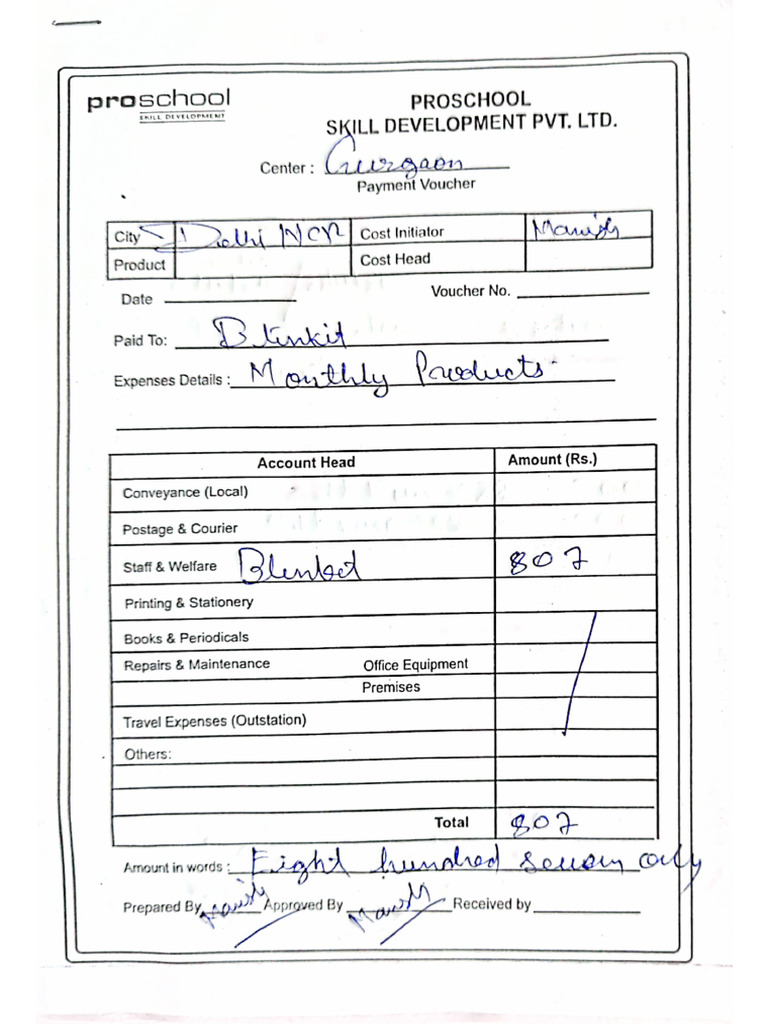 proschool
SKILL DEVELOPMENT
PROSCHOOL
SKILL DEVELOPMENT PVT. LTD.
Center : Gurgaon
Payment Voucher
City Delhi NCR Cost Initiator Manish
Product Cost Head
Date Voucher No.
Paid To: Blinkit
Expenses Details : Monthly Products
Account Head Amount (Rs.)
Conveyance (Local)
Postage & Courier
Staff & Welfare Blinkit 807
Printing & Stationery
Books & Periodicals
Repairs & Maintenance Office Equipment
Premises
Travel Expenses (Outstation)
Others:
Total 807
Amount in words : Eight hundred seven only
Prepared By Manish Approved By Manish Received by